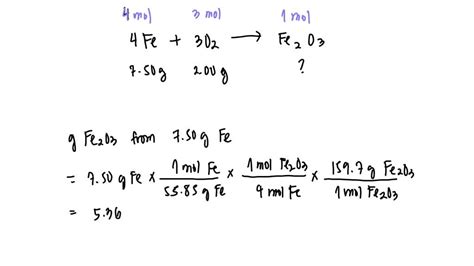 4 mol 3 mol 1 mol
4Fe + 3O₂ → Fe₂O₃
7.50 g 2.00 g ?
g Fe₂O₃ from 7.50 g Fe
= 7.50 g Fe × 1 mol Fe / 55.85 g Fe × 1 mol Fe₂O₃ / 4 mol Fe × 159.7 g Fe₂O₃ / 1 mol Fe₂O₃
= 5.36